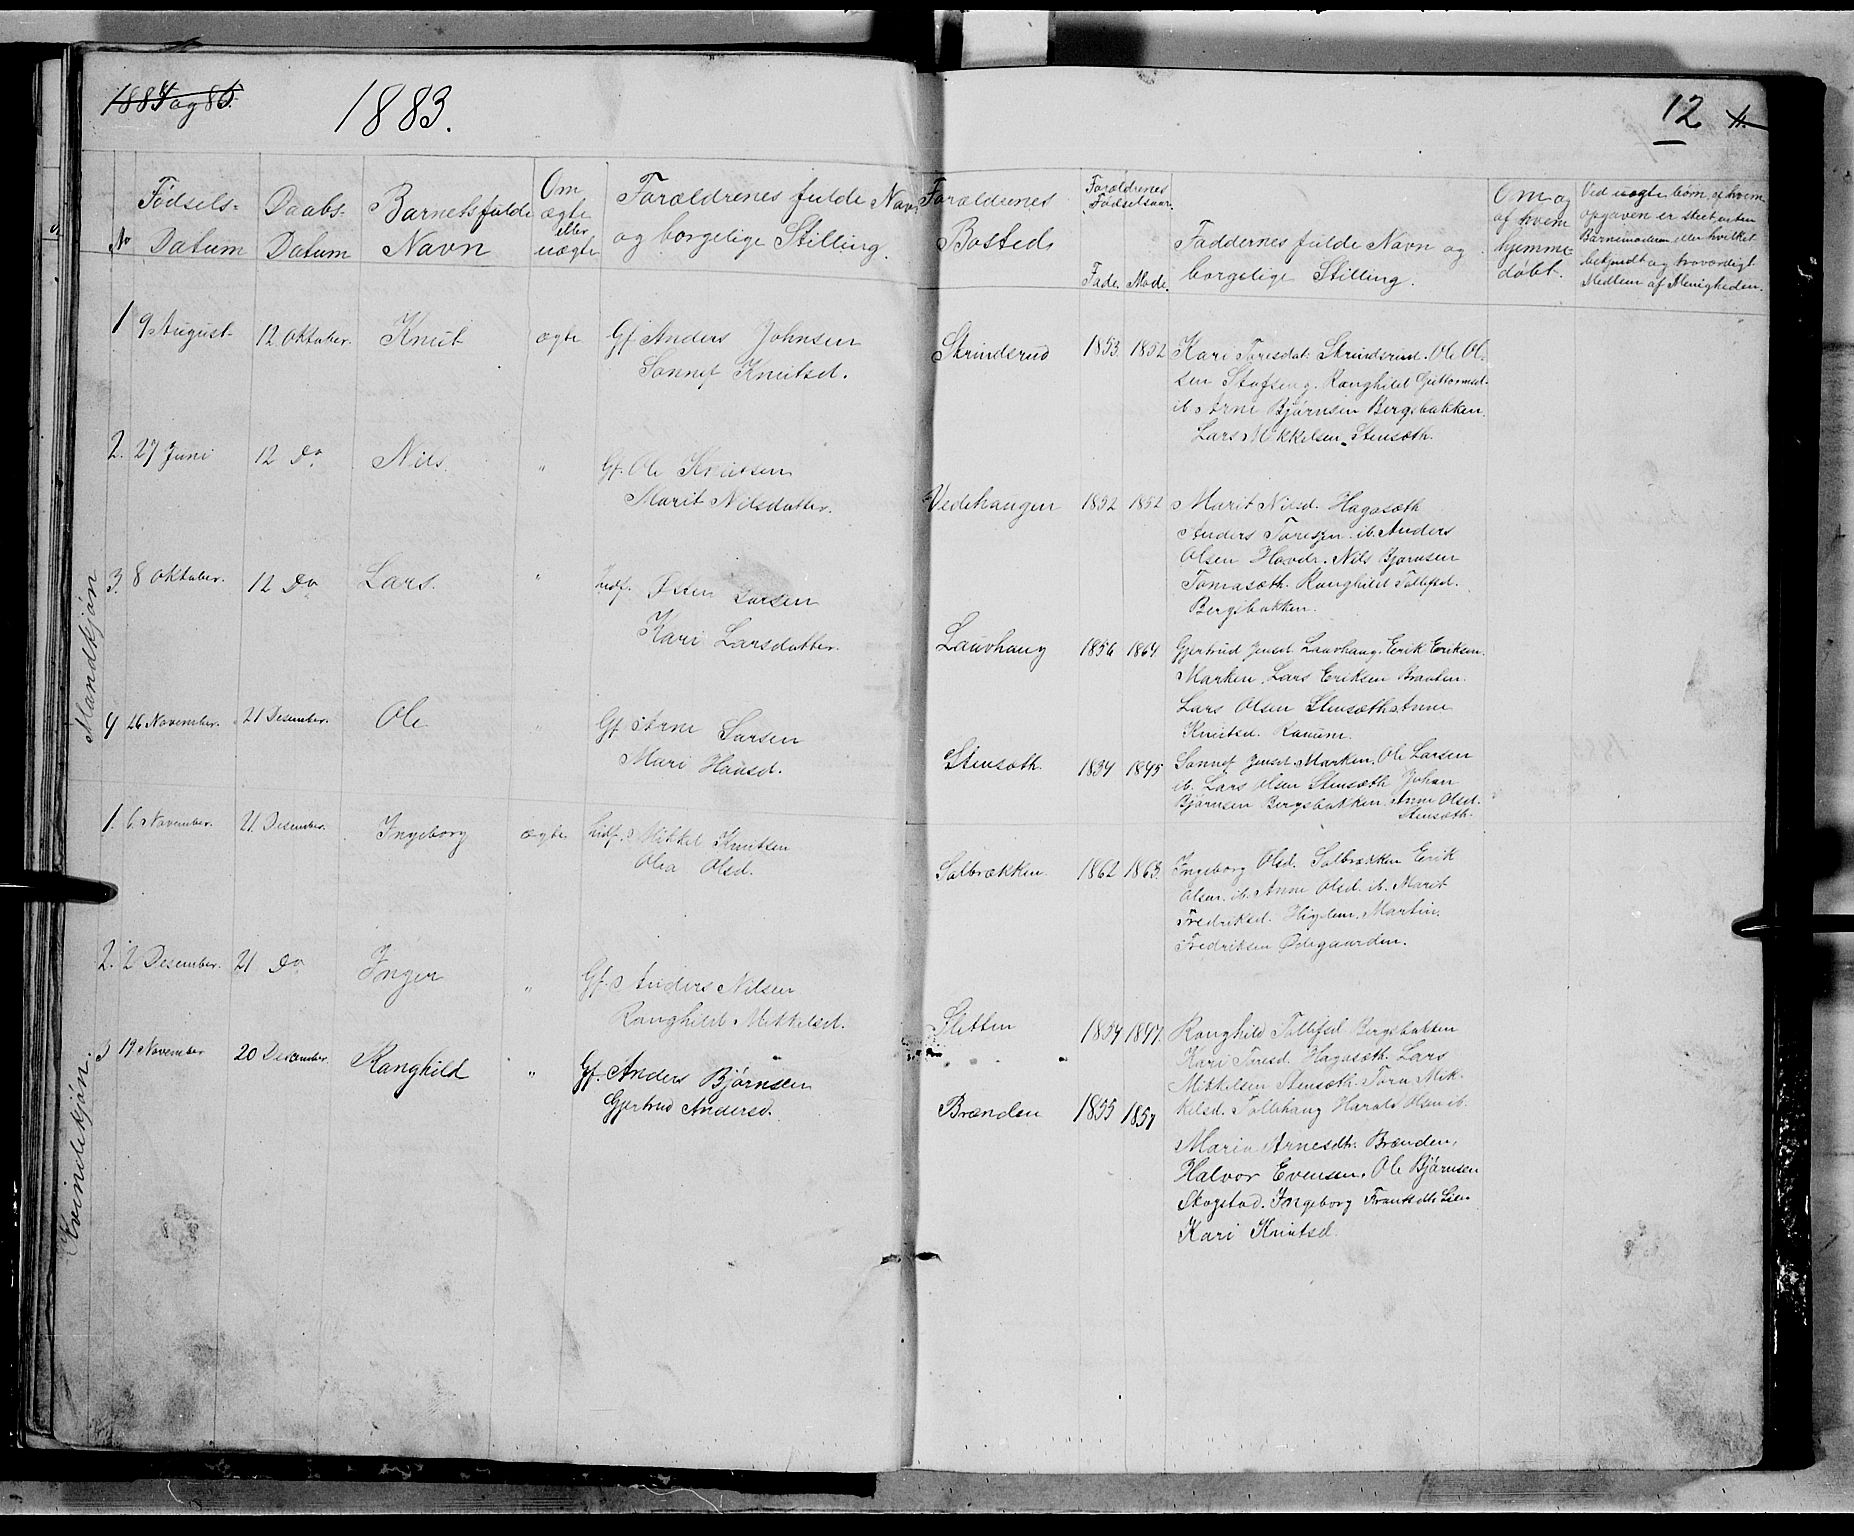 1884 og 85.
1883.
12 11.
No
Fødsels-
Datum
Daabs-
Datum
Barnets fulde
Navn
Om
ægte
eller
uægte
Forældrenes fulde Navn
og borgelige Stilling.
Forældrenes
Bosted
Forældrenes
Fødselsaar.
Fade. Mode.
Faddernes fulde Navn og
borgelige Stilling.
Om og
af hvem
hjemme-
døbt.
Ved uægte børn, af hvem
opgaven er skeet enten
Barnemoderen eller hvilket
bekjendt og troværdigt
Medlem af Menigheden.
Mandkjøn
1 9 August 12 Oktober. Knut ægte Gf Anders Johnsen
Sønnef Knutsd.
Strinderud 1853. 1852 Kari Toresdat. Strinderud. Ole Ol-
sen Stafseng. Ranghild Guttormsd.
ib. Arne Bjørnsen Bergsbakken.
Lars Mikkelsen Stensæth.
2. 27 Juni 12 Do Nils. " Gf. Ole Knutsen
Marit Nilsdatter.
Vedehaugen 1852 1852 Marit Nilsd. Hagasæth
Anders Toresen ib. Anders
Olsen Hovde. Nils Bjørnsen
Tomasæth. Ranghild Tollefsd.
Bergsbakken.
3. 8 Oktober. 12 Do Lars. " Indf. Østen Larsen
Kari Larsdatter.
Lauvhaug 1856 1864 Gjertrud Jensd. Lauvhaug. Erik Eriksen
Marken. Lars Eriksen Braaten.
Lars Olsen Stensæth. Anne
Knutsd. Ranum.
4 26 November. 21 Desember. Ole " Gf Arne Larsen
Mari Hansd.
Stensæth. 1854 1845 Sønnef Jensd. Marken. Ole Larsen
ib. Lars Olsen Stensæth Johan
Bjørnsen Bergsbakken. Anne Olsd.
Stensæth.
Kvindekjøn.
1. 6. November. 21 Desember. Ingeborg ægte Indf. Mikkel Knutsen
Olea Olsd.
Solbrækken 1862 1863. Ingeborg Olsd. Solbrækken Erik
Olsen. ib. Anne Olsd. ib. Marit
Fredriksd. Høgelien. Martin.
Fredriksen Ødegaarden.
2. 2 Desember. 21 Do Inger " Gf. Anders Nilsen
Ranghild Mikkelsd.
Sletten 1854 1847. Ranghild Tollefsd Bergsbakken
Kari Toresd. Hagasæth. Lars
Mikkelsen Stensæth. Tora Mik-
kelsd. Tollehaug Harald Olsen ib.
3 19 November 20 Desember. Ranghild " Gf. Anders Bjørnsen
Gjertrud Andersd.
Brænden 1855 1857
Maria Arnesdtr. Brænden,
Halvor Evensen, Ole Bjørnsen
Skogstad. Ingeborg Frantsdtr. Lien
Kari Knutsd.